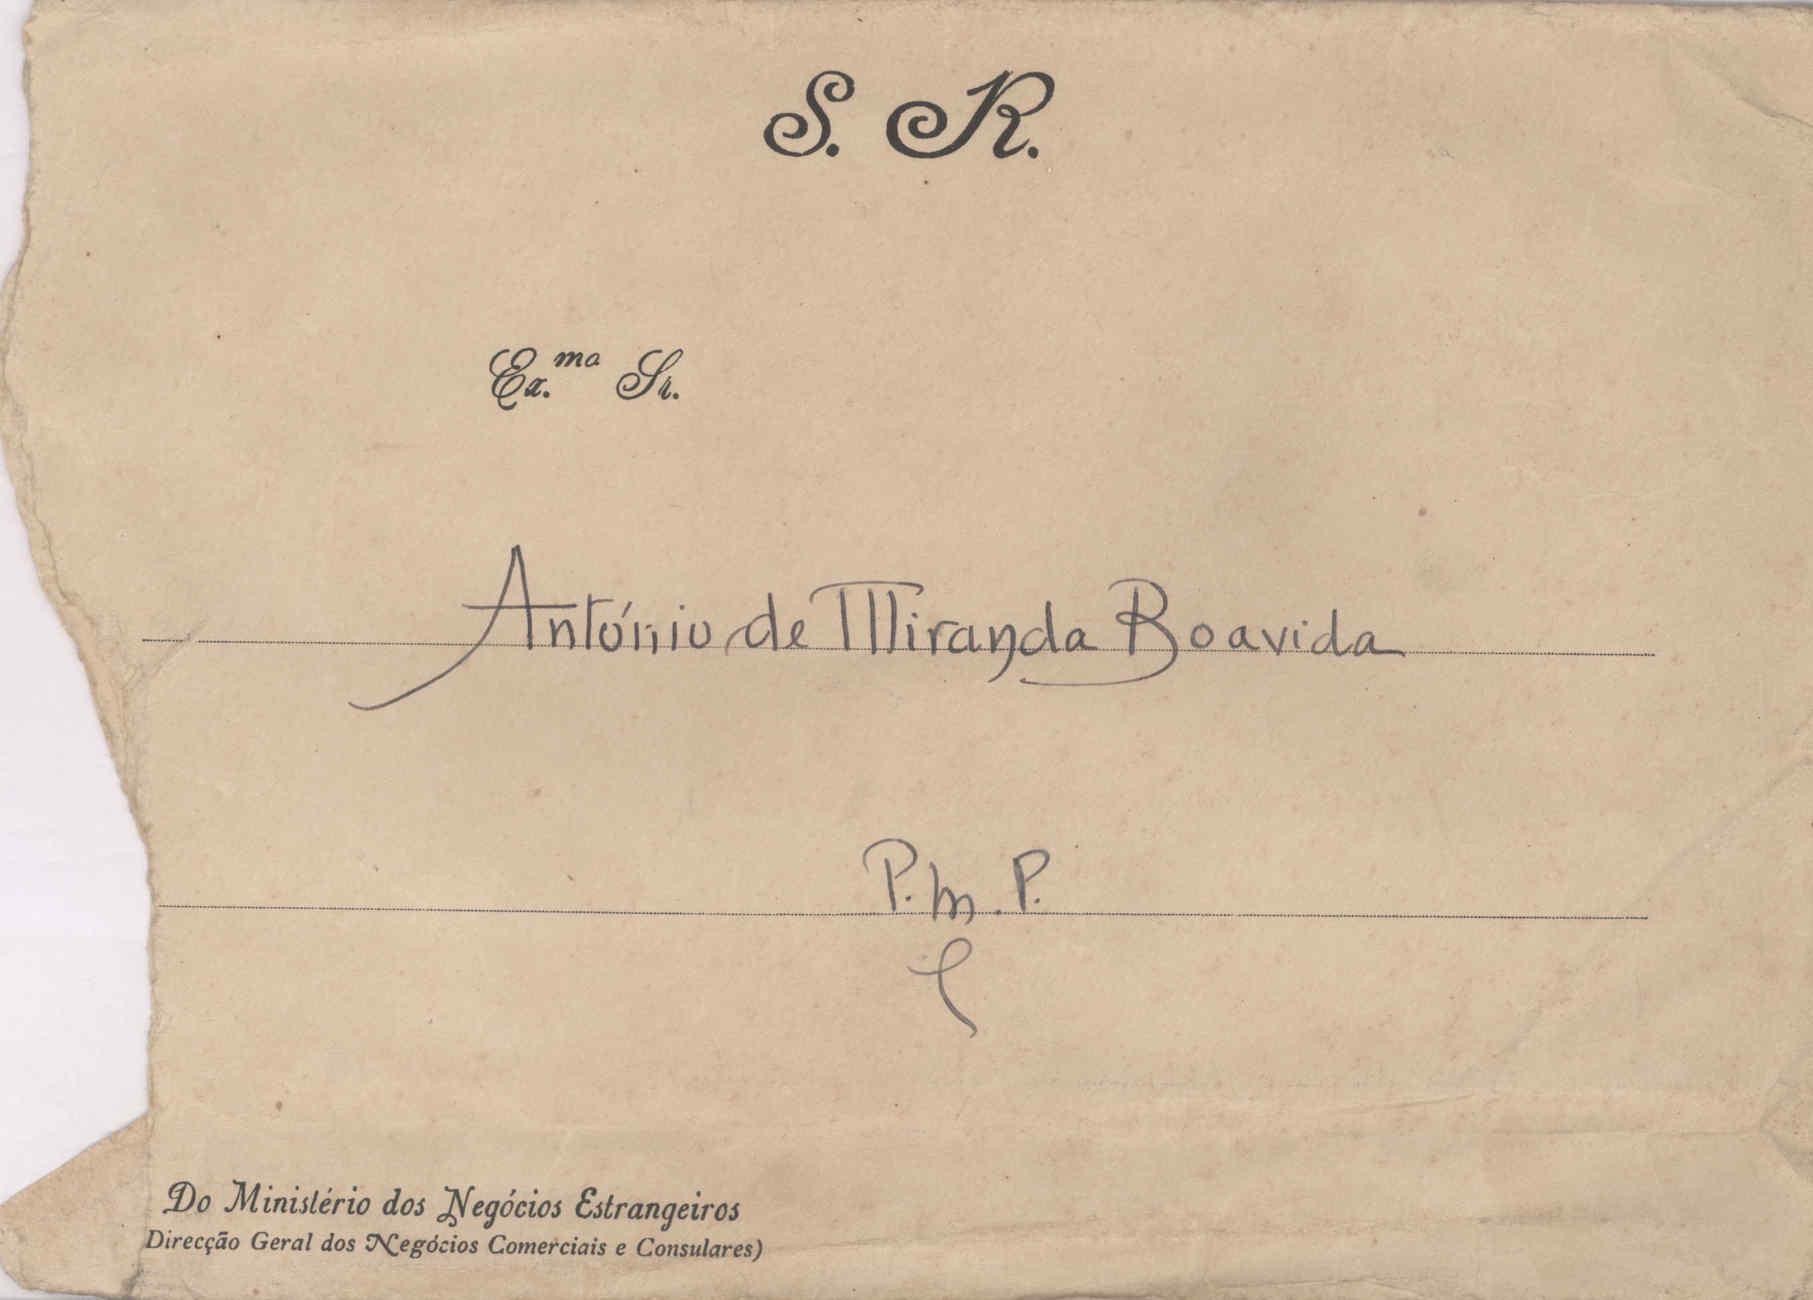 S. R.
Ex.mo Sr.
António de Miranda Boavida
P.M.P.
Do Ministério dos Negócios Estrangeiros
Direcção Geral dos Negócios Comerciais e Consulares)